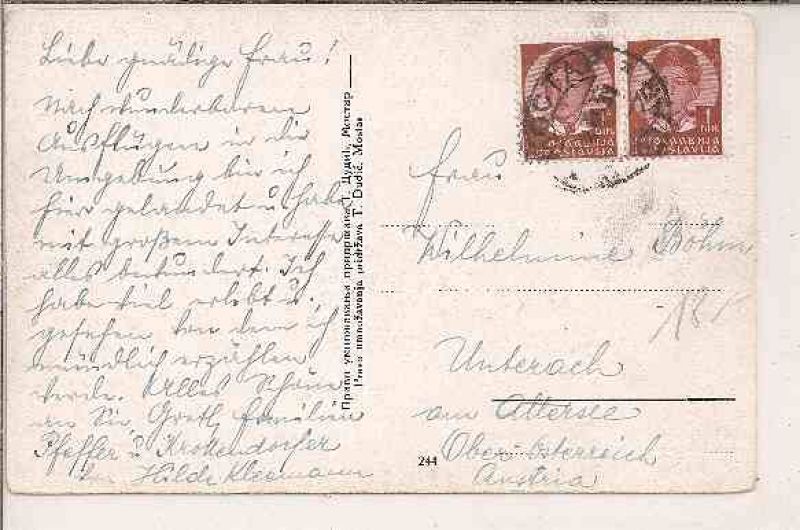 Liebe gnädige Frau!
Nach wunderbaren
Ausflügen in die
Umgebung bin ich
hier gelandet u. habe
mit großem Interesse
alles bewundert. Ich
habe viel erlebt u.
gesehen von dem ich
mündlich erzählen
werde. Alles Schöne
an Sie, Gretl, Familien
Pfeffer u Krottendorfer
von Hilde Kleemann
Право умножавања придржава Т. Дудић, Мостар
Pravo umnožavanja pridržava T. Dudić, Mostar
244
1 DIN.
ЈУГОСЛАВИЈА
JUGOSLAVIJA
1 DIN.
ЈУГОСЛАВИЈА
JUGOSLAVIJA
Frau
Wilhelmine Böhm
Unterach
am Attersee
Ober-österreich
Austria